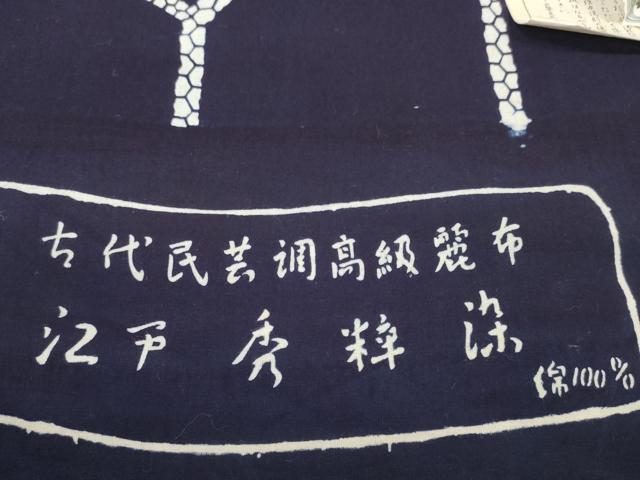 古代民芸調高級麗布
江戸秀粹染
綿100%